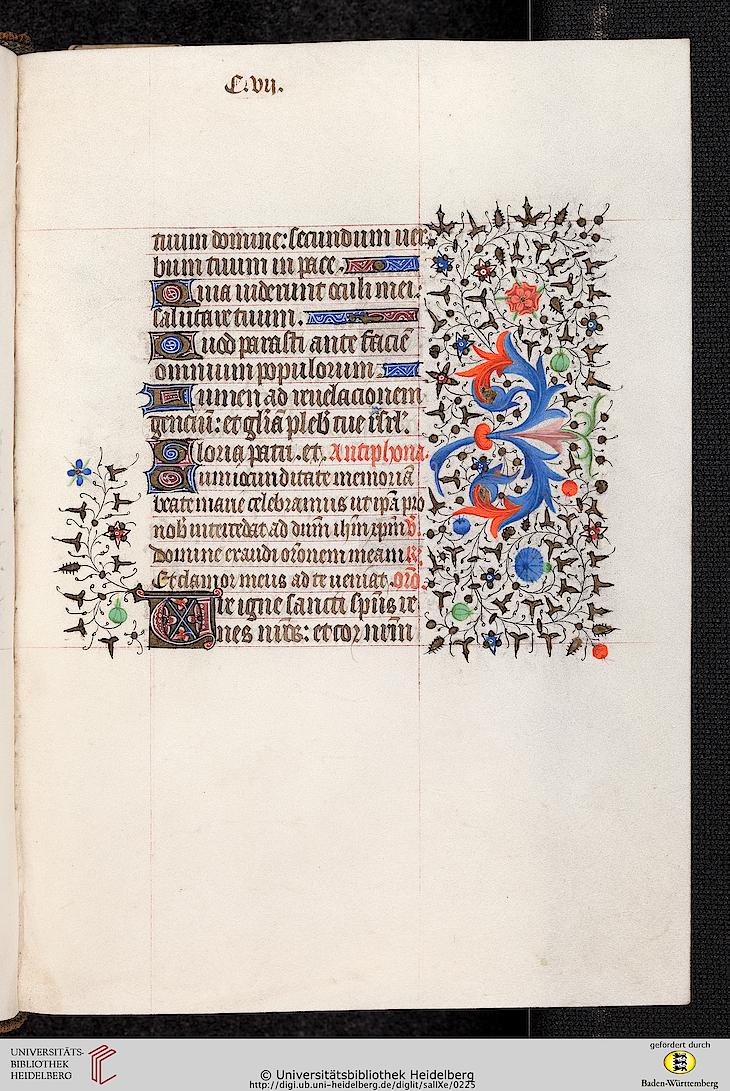 C. vii.
tuum domine: secundum uer
bum tuum in pace.
Quia uiderunt oculi mei.
salutare tuum.
Quod parasti ante faciē
omnium populorum.
Lumen ad reuelacionem
genciū: et gl̄iā pleb̄ tue isrl̄.
Gloria patri. et. Antiphona.
Cum iocunditate memoriā
beate marie celebramus ut ip̄a pro
nob̄ intercedat ad dn̄m ih̄m xp̄m ṽ.
Domine exaudi or̄onem meam ℟.
Et clamor meus ad te ueniat. or̄o
Ure igne sancti spūs re
nes nr̄os: et cor nr̄m
UNIVERSITÄTS-
BIBLIOTHEK
HEIDELBERG
© Universitätsbibliothek Heidelberg
http://digi.ub.uni-heidelberg.de/diglit/salIXe/0225
gefördert durch
Baden-Württemberg